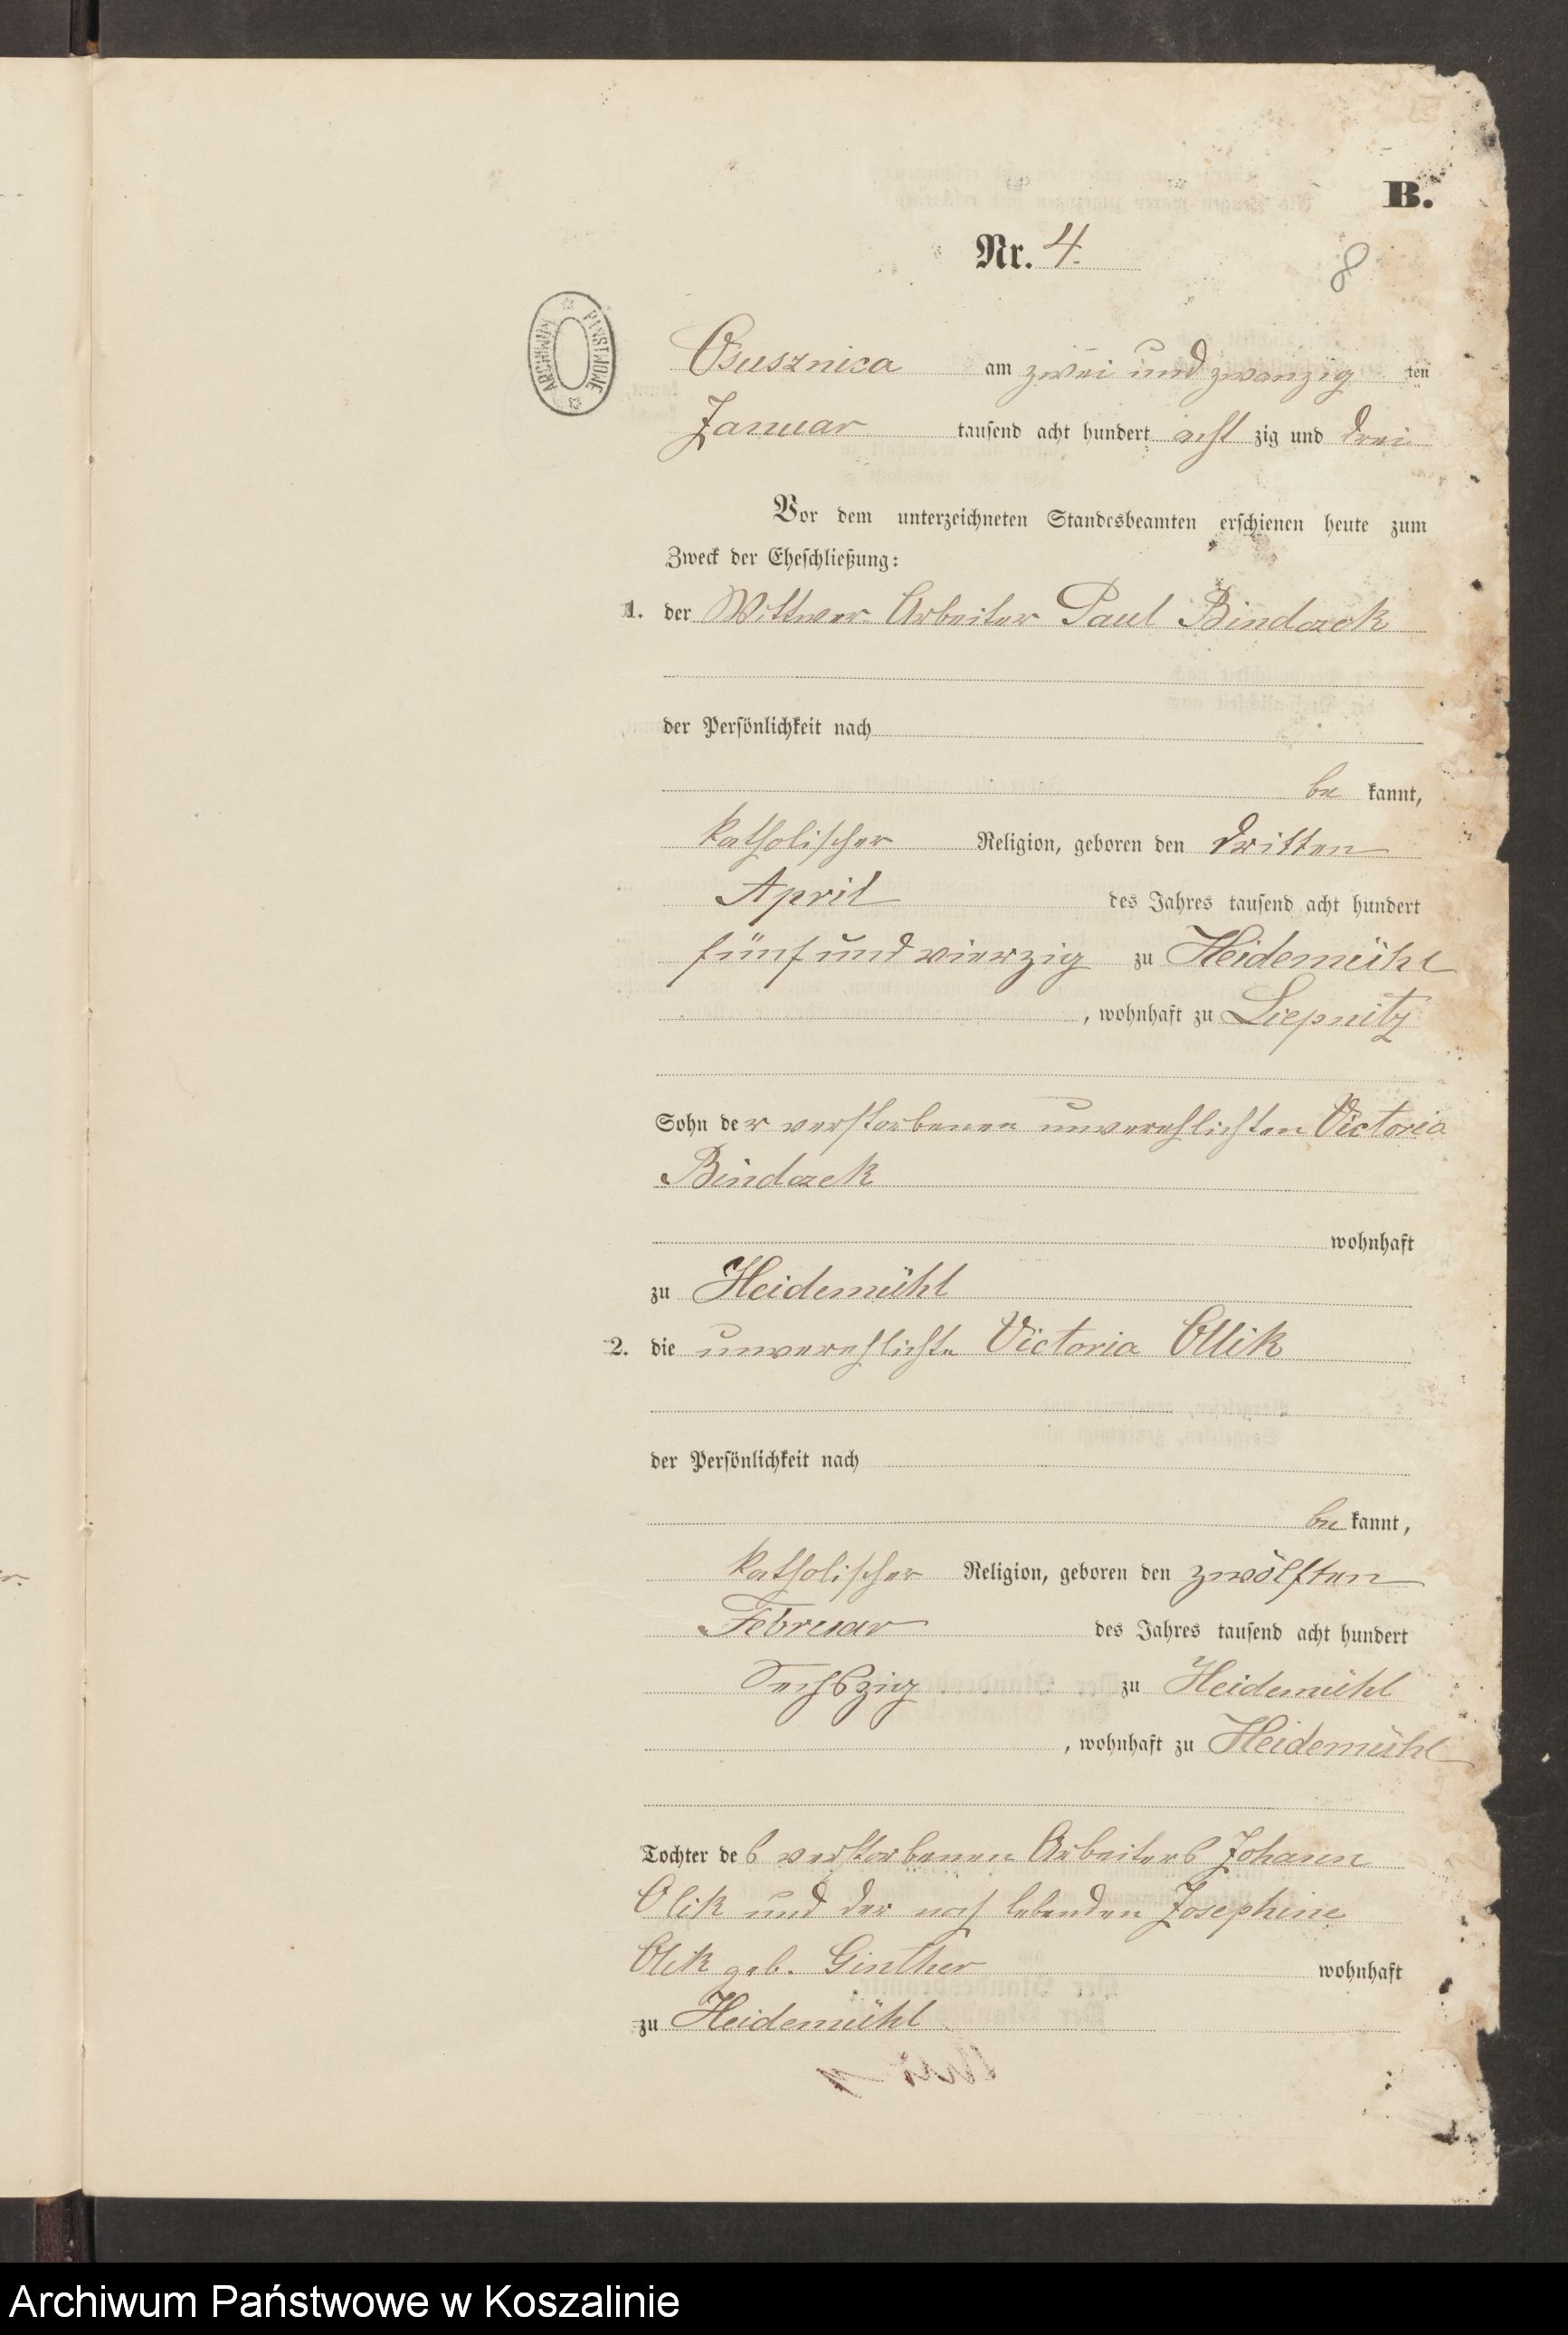 B.
Nr. 4.
8
ARCHIWUM PAŃSTWOWE
Osusznica am zwei und zwanzig ten
Januar tausend acht hundert acht zig und drei
Vor dem unterzeichneten Standesbeamten erschienen heute zum
Zweck der Eheschließung:
1. der Wittwer Arbeiter Paul Bindaek
der Persönlichkeit nach
be kannt,
katholischer Religion, geboren den dritten
April des Jahres tausend acht hundert
fünf und vierzig zu Heidemühl
, wohnhaft zu Liepnitz
Sohn der verstorbenen unverehlichten Victoria
Bindaek
wohnhaft
zu Heidemühl
2. die unverehlichte Victoria Ollik
der Persönlichkeit nach
be kannt,
katholischer Religion, geboren den zwölften
Februar des Jahres tausend acht hundert
Sechszig zu Heidemühl
, wohnhaft zu Heidemühl
Tochter des verstorbenen Arbeiters Johann
Olik und der noch lebenden Josephine
Olik geb. Ginther wohnhaft
zu Heidemühl
Archiwum Państwowe w Koszalinie